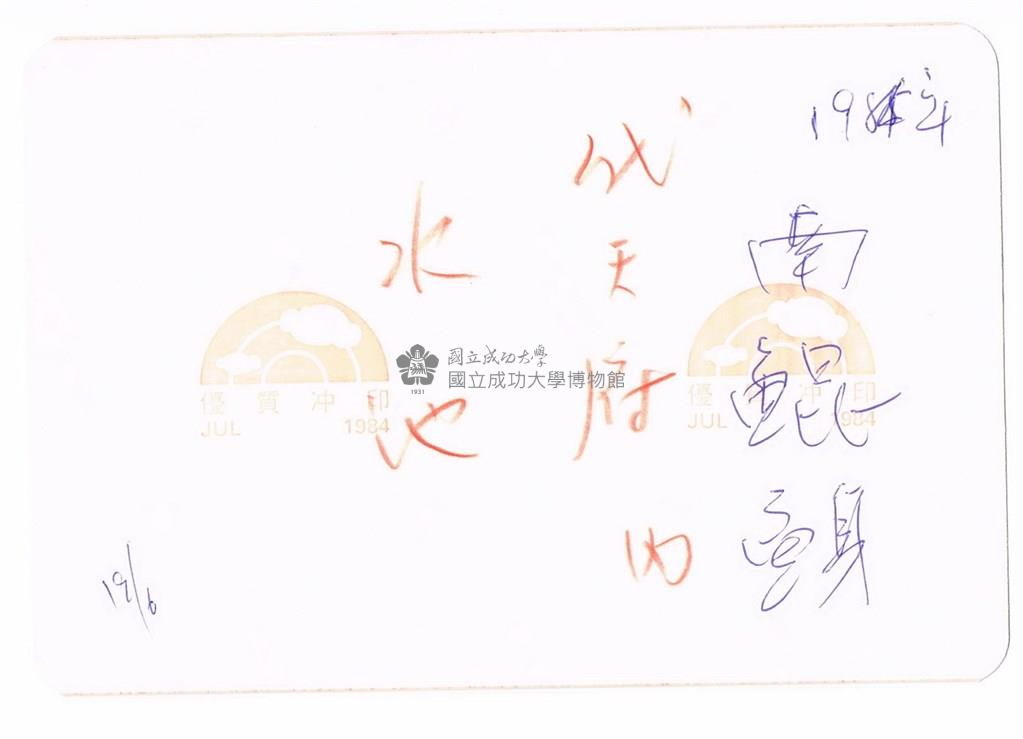 1984年
南鯤鯓
代天府內
水池
19/6
國立成功大學
國立成功大學博物館
1931
優質冲印
JUL 1984
優質冲印
JUL 1984